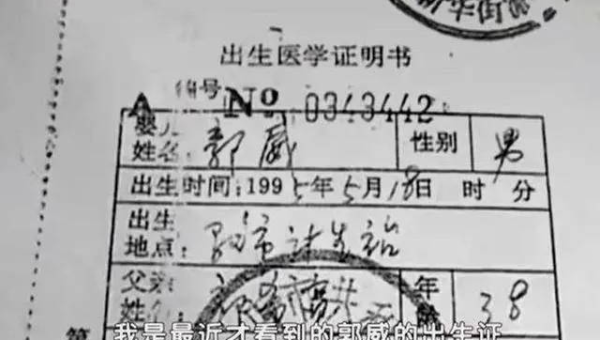 新华街
出生医学证明书
A 编号 No 0343442
婴儿姓名: 郭威 性别 男
出生时间:1995年5月18日 时 分
出生地点:
父亲姓名: 年龄 38
第
我是最近才看到的郭威的出生证